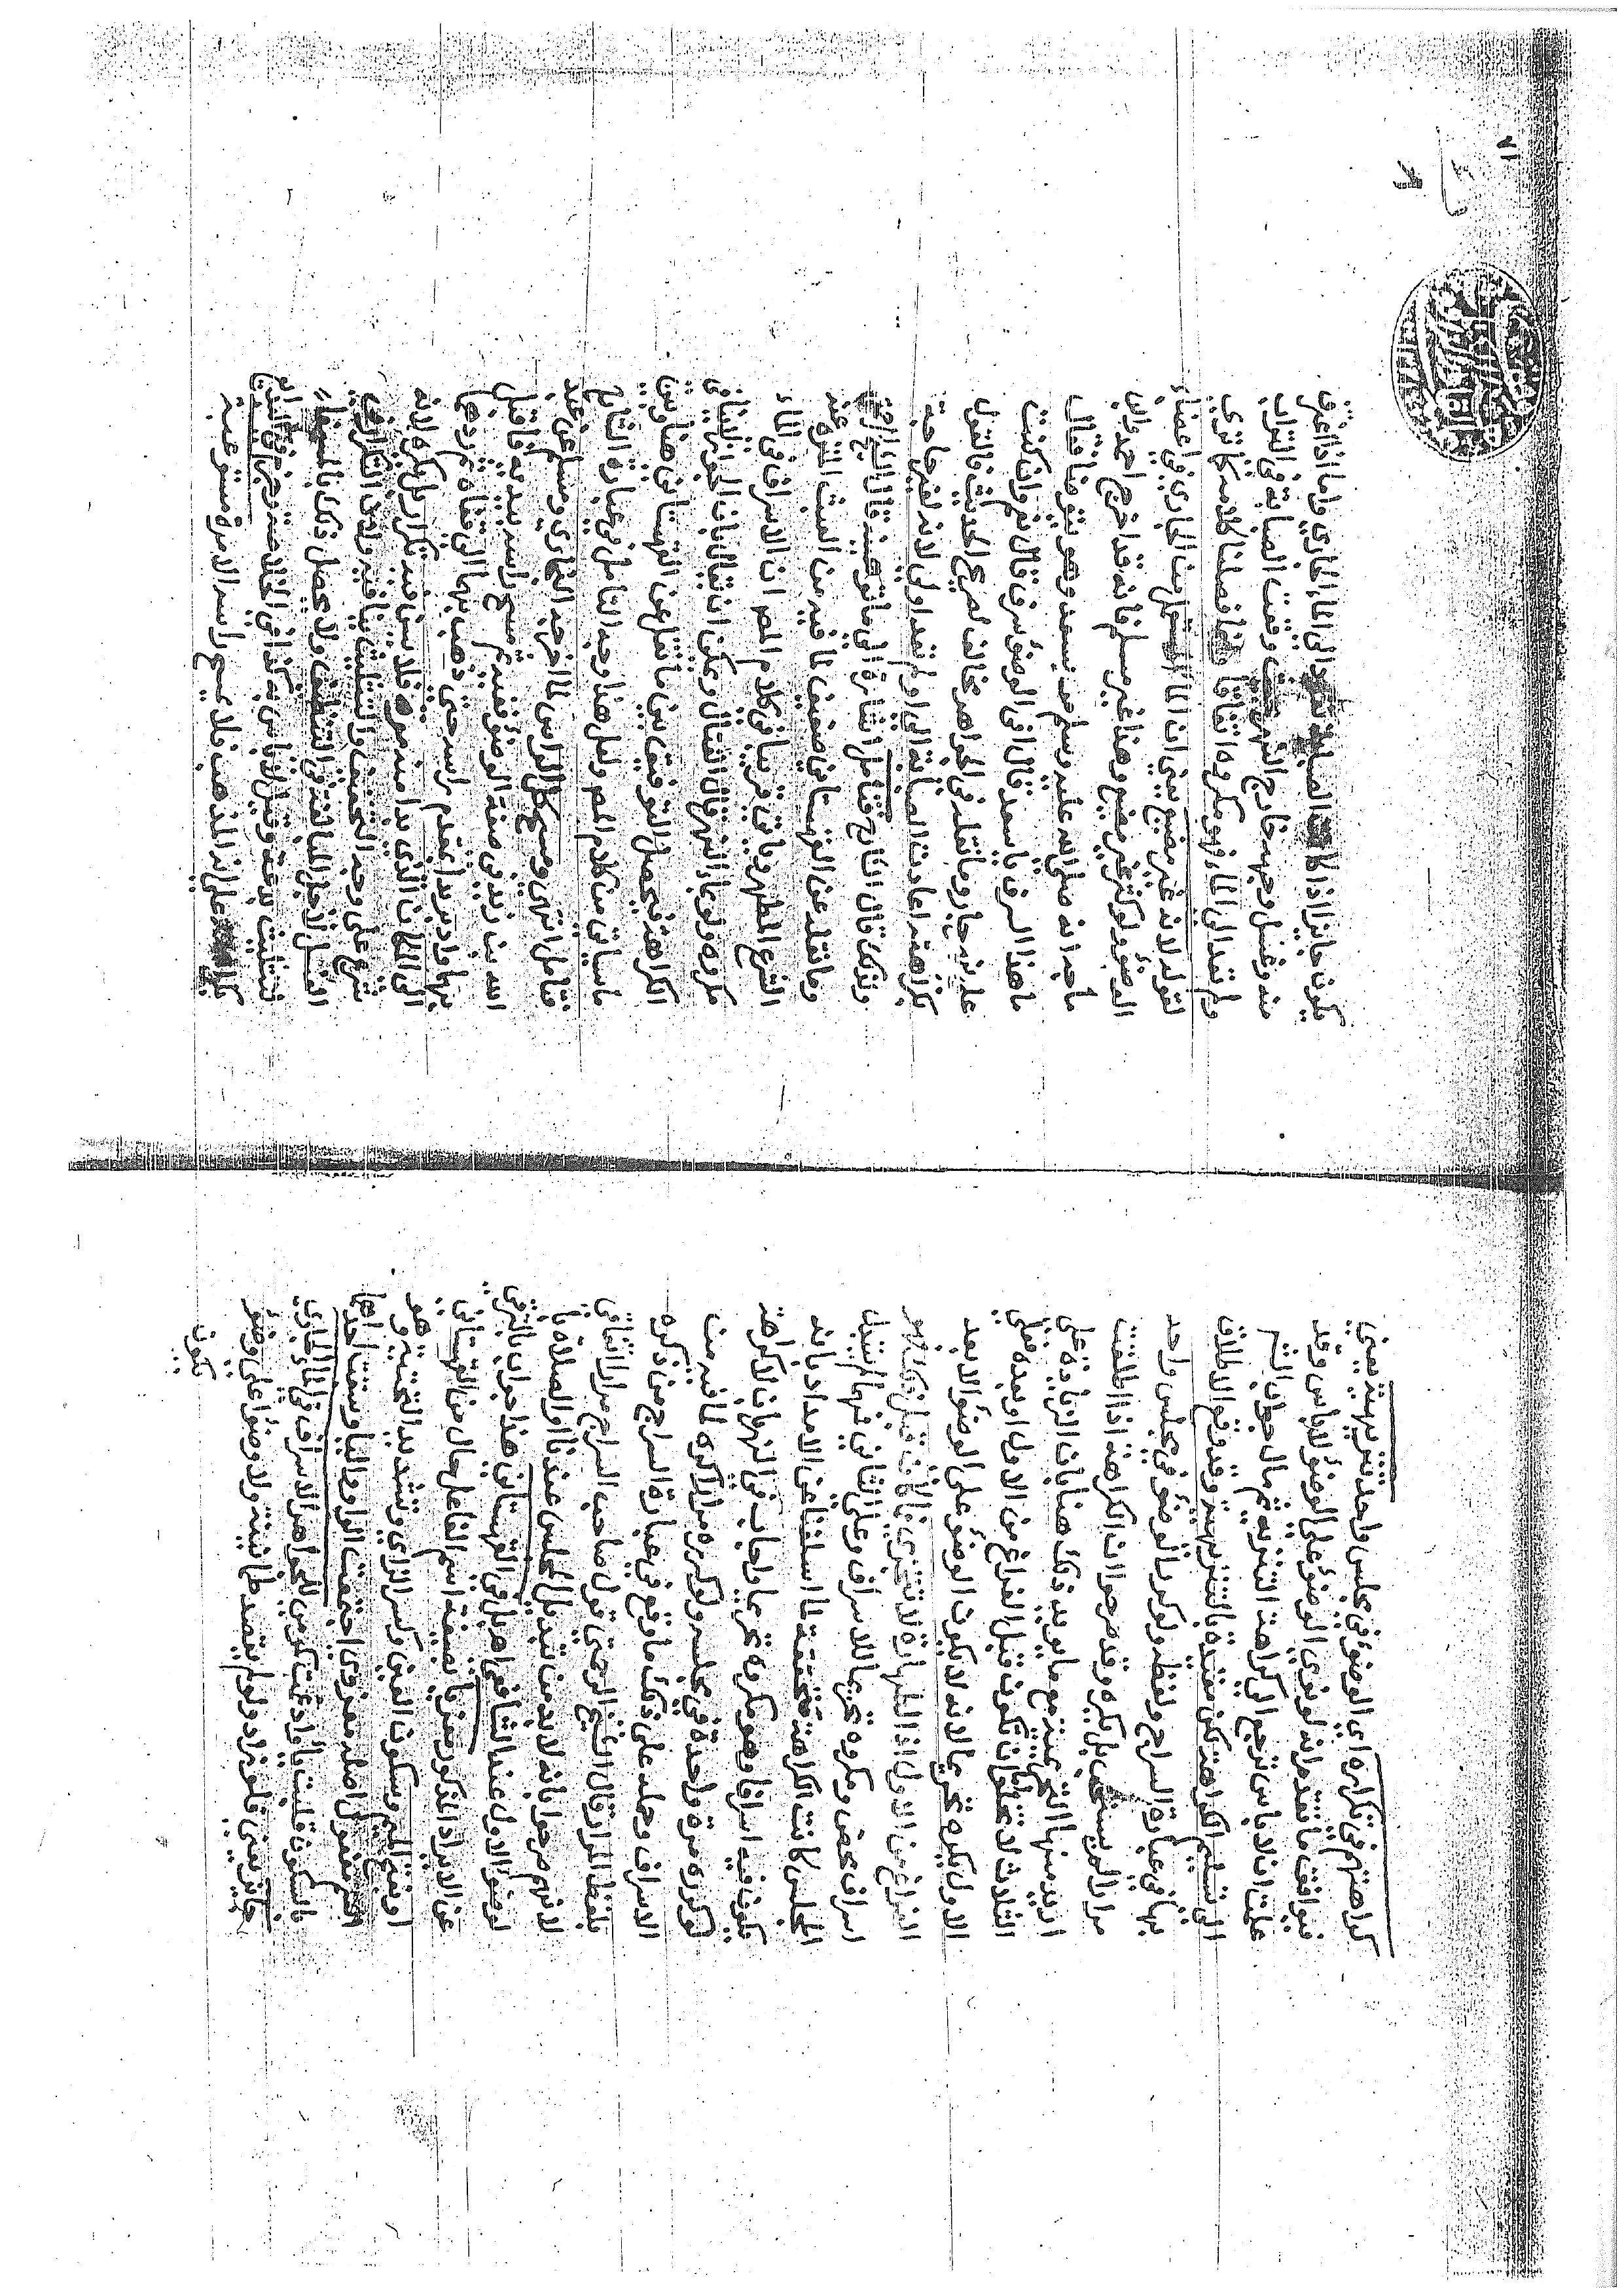 كراهتهم في تكراره اي الوضوء في مجلس واحد تنزيهية يعني
فيوافق ما تقدم انه لو نوي الوضوء على الوضوء لا باس وقد
علمت ان لا باس ترجع الى كراهة التنزيه ثم مال جواب الشم
الى تسليم الكراهة لكن مقيدة بالتنزيهية وقد وقع الاطلاق
بها في عبارة السراج ولفظه لو كرر الوضوء في مجلس واحد
مرارا لم يستحب بل يكره وقد صرحوا ان الكراهة اذا اطلقت
اريد منها التحريمية مع ما يويد ذلك هنا بان الزيادة على
الثلاث لا تخلوا ان تكون قبل الفراغ من الاول او بعده فعلى
الاول يكره تحريما لانه لا يكون الوضوء على الوضوء الا بعد
الفراغ من الاول اذ الطهارة لا تتجزى فالآن قبل ذلك فهو
اسراف محض ومكروه تحريما للاسراف وعلى الثاني فمهما لم يتبدل
المجلس كانت الكراهة متحققة لما اسلفنا عن الامداد بانه
يكون فيه اسرافا وهو مكروه تحريما واجاب في النهر بان الكراهة
لو كرره مرة واحدة في مجلسه ولو كرره مرارا كره لما فيه من
الاسراف وحمله على ذلك ما وقع في عبارة السراج من ذكره
بلفظ المرار وقال الشيخ الرحمتي قول صاحب السراج مرارا اتفاقي
لانهم صرحوا بانه لا بد من تبدل المجلس عندنا او الصلاة بما
لوضوء الاول عند الشافعي اهل في القهستاني هذا جواب بالترقي
عن الايراد المذكور معزيا بصيغة اسم الفاعل حال من القهستاني
او بفتح الميم وسكون العين وكسر الزاي وتشديد التحتية وهو
اسم مفعول اصله معزوي اجتمعت الواو والياء وسبقت احداهما
بالسكون قلبت ياء وادغمت للجواهر الاسراف في الماء الجاري
جائز يعني فلو زاد ولو لم يقصد طمانينة ولا وضوءا على وضوء
تكون
يكون جائزا اذا كان الصب لا يعود الى الماء الجاري واما اذا اغترف
منه وغسل وجهه خارج النهر تحقق وقعت الصبابة في التراب
ولم تعد الى الماء فهو مكروه اتفاقا فصلنا كلامه كما ترى
لقوله لانه غير مضيع يعني ان الماء المستعمل من الجاري في اعضاء
الوضوء لو كثر غير مضيع وهذا غير مسلم فانه قد اخرج احمد وابن
ماجه انه صلى الله عليه وسلم مر بسعد وهو يتوضا فقال
ما هذا السرف يا سعد قال افي الوضوء سرف قال نعم وان كنت
على نهر جار وما نقله في الجواهر مخالف لصريح الحديث فالقول
بكراهته اعادت الصبابة الى اولم تعد اولى لانه لغير حاجة
وتذكر قال الشارح فتامل اشارة الى ما توهمنه قال الشيخ الرحمتي
وما نقله عن القهستاني ضعيف لما فيه من العبث المنهي عنه
الشرع المطهر وياتي قريبا في كلام المصم ان الاسراف في الماء
مكروه ولو بماء النهر قال القتال ويمكن ان يقال بان الجواز لا ينافي
الكراهة فيحصل التوفيق بين ما نقل عن القهستاني هنا وبين
ما سياتي من كلام المصم ولعل هذا وجه التامل في عبارة الشارح
فتامل انتهى ومسح كل الراس لما اخرجه البخاري ومسلم عن عبد
الله بن زيد في صفة الوضوء فيه ثم مسح راسه بيديه فاقبل
بهما وادبر بدا بمقدم راسه حتى ذهب بهما الى قفاه ثم ردهما
الى المكان الذي بدا منه مرة فلا يسن فيه تكرار بل يكره لانه
شرع على وجه التخفيف والتثليث ينافيه ولان التكرار في
الغسل لاجل المبالغة في التنظيف ولا يحصل ذلك بالمسح بماء
فتثليثه بدعة وقيل لا باس به كذا في الخلاصة وجزم في البدائع
بكراهته على انه المذهب فلا يمسح راسه الا مرة مستوعبة